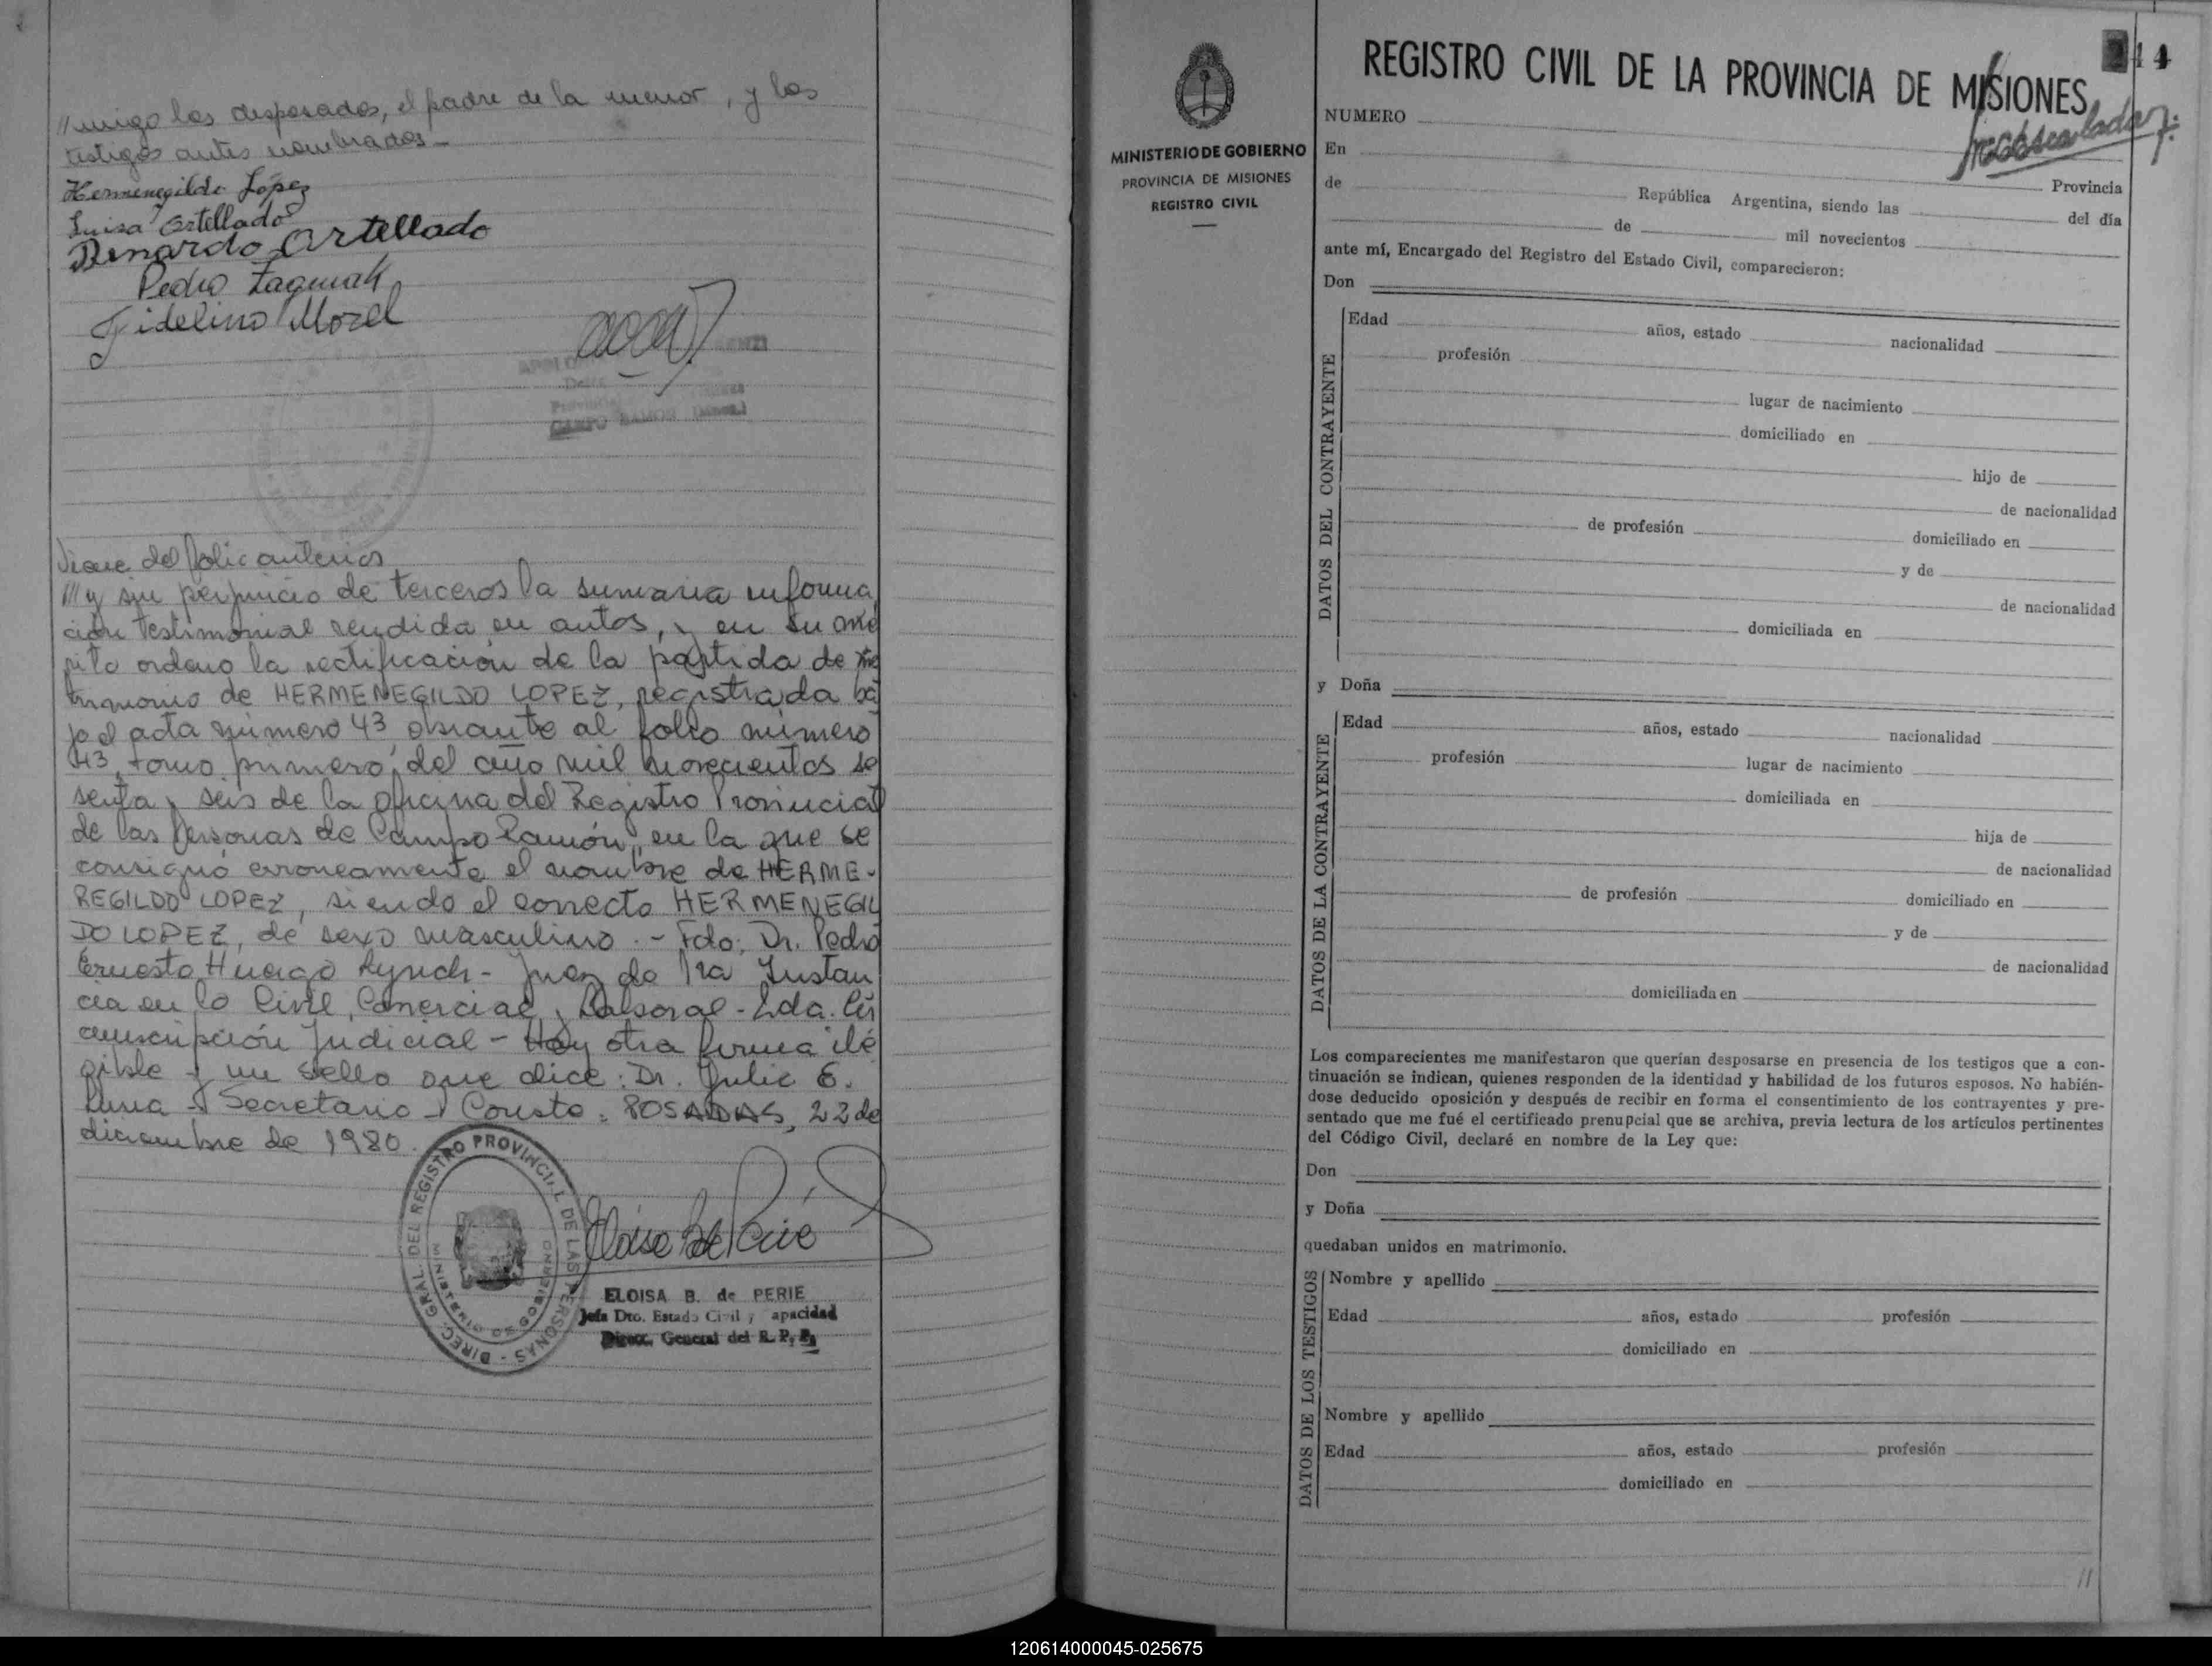 //migo los desposados, el padre de la menor, y los
testigos antes nombrados.-
Hermenegildo Lopez
Luisa Ortellado
Bernardo Ortellado
Pedro Zaguiak
Fidelino Morel
CAMPO RAMON
Sigue del folio anterior
///y sin perjuicio de terceros la sumaria informa
ción testimonial rendida en autos, y en su mé
rito ordeno la rectificación de la partida de ma
trimonio de HERMENEGILDO LOPEZ, registrada ba
jo el acta número 43 obrante al folio número
43, tomo primero, del año mil novecientos se
senta y seis de la oficina del Registro Provincial
de las Personas de Campo Ramón, en la que se
consignó erroneamente el nombre de HERME-
REGILDO LOPEZ, siendo el correcto HERMENEGIL
DO LOPEZ, de sexo masculino.- Fdo: Dr. Pedro
Ernesto Huergo Lynch - Juez de 1ra Instan
cia en lo Civil, Comercial y Laboral - 2da. Cir
cunscripción Judicial - Hay otra firma ile
gible y un sello que dice: Dr. Julio E.
Luna - Secretario - Conste: POSADAS, 22 de
diciembre de 1980.
DIREC. GRAL. DEL REGISTRO PROVINCIAL DE LAS PERSONAS
ELOISA B. de PERIE
Jefa Dto. Estado Civil y apacidad
Direcc. General del R. P. P.
MINISTERIO DE GOBIERNO
PROVINCIA DE MISIONES
REGISTRO CIVIL
44
REGISTRO CIVIL DE LA PROVINCIA DE MISIONES
NUMERO
Inoescalada
En
de Provincia
República Argentina, siendo las del día
de mil novecientos
ante mí, Encargado del Registro del Estado Civil, comparecieron:
Don
DATOS DEL CONTRAYENTE
Edad años, estado nacionalidad
profesión
lugar de nacimiento
domiciliado en
hijo de
de nacionalidad
de profesión domiciliado en
y de
de nacionalidad
domiciliada en
y Doña
DATOS DE LA CONTRAYENTE
Edad años, estado nacionalidad
profesión lugar de nacimiento
domiciliada en
hija de
de nacionalidad
de profesión domiciliado en
y de
de nacionalidad
domiciliada en
Los comparecientes me manifestaron que querían desposarse en presencia de los testigos que a con-
tinuación se indican, quienes responden de la identidad y habilidad de los futuros esposos. No habién-
dose deducido oposición y después de recibir en forma el consentimiento de los contrayentes y pre-
sentado que me fué el certificado prenupcial que se archiva, previa lectura de los artículos pertinentes
del Código Civil, declaré en nombre de la Ley que:
Don
y Doña
quedaban unidos en matrimonio.
DATOS DE LOS TESTIGOS
Nombre y apellido
Edad años, estado profesión
domiciliado en
Nombre y apellido
Edad años, estado profesión
domiciliado en
120614000045-025675